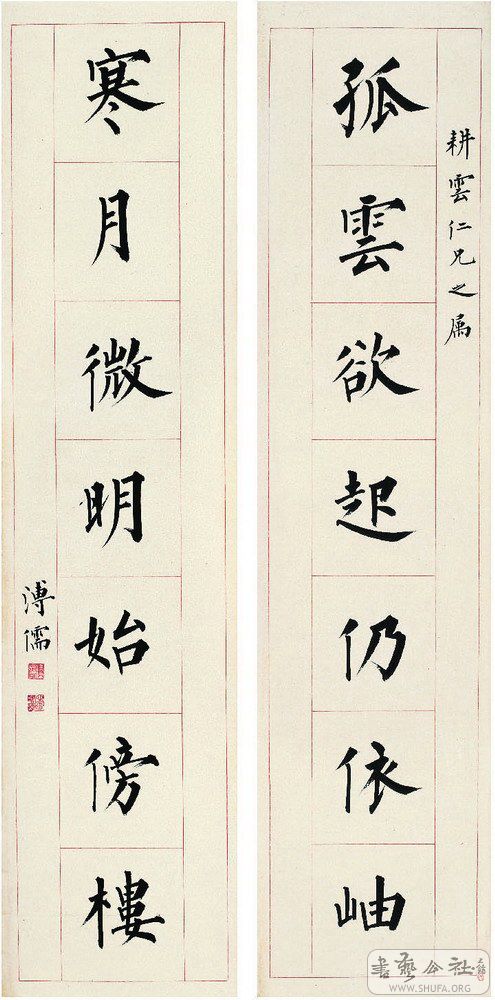 耕雲仁兄之属
孤雲欲起仍依岫
寒月微明始傍樓
溥儒
書藝公社
WWW.SHUFA.ORG